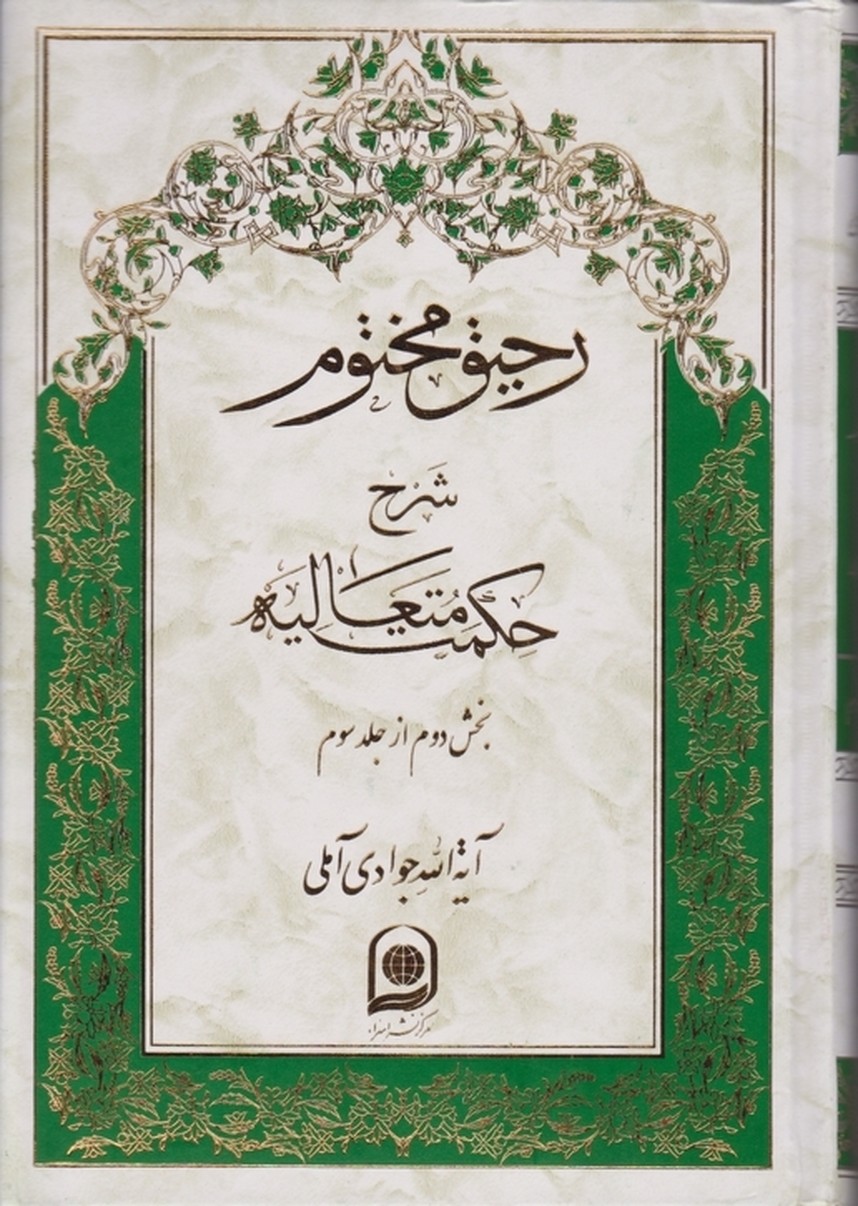 رحیق مختوم
شَرح
حِکمَت مُتَعَالیَه
بخش دوم از جلد سوم
آیة اللّه جوادی آملی
مرکز نشر اسراء